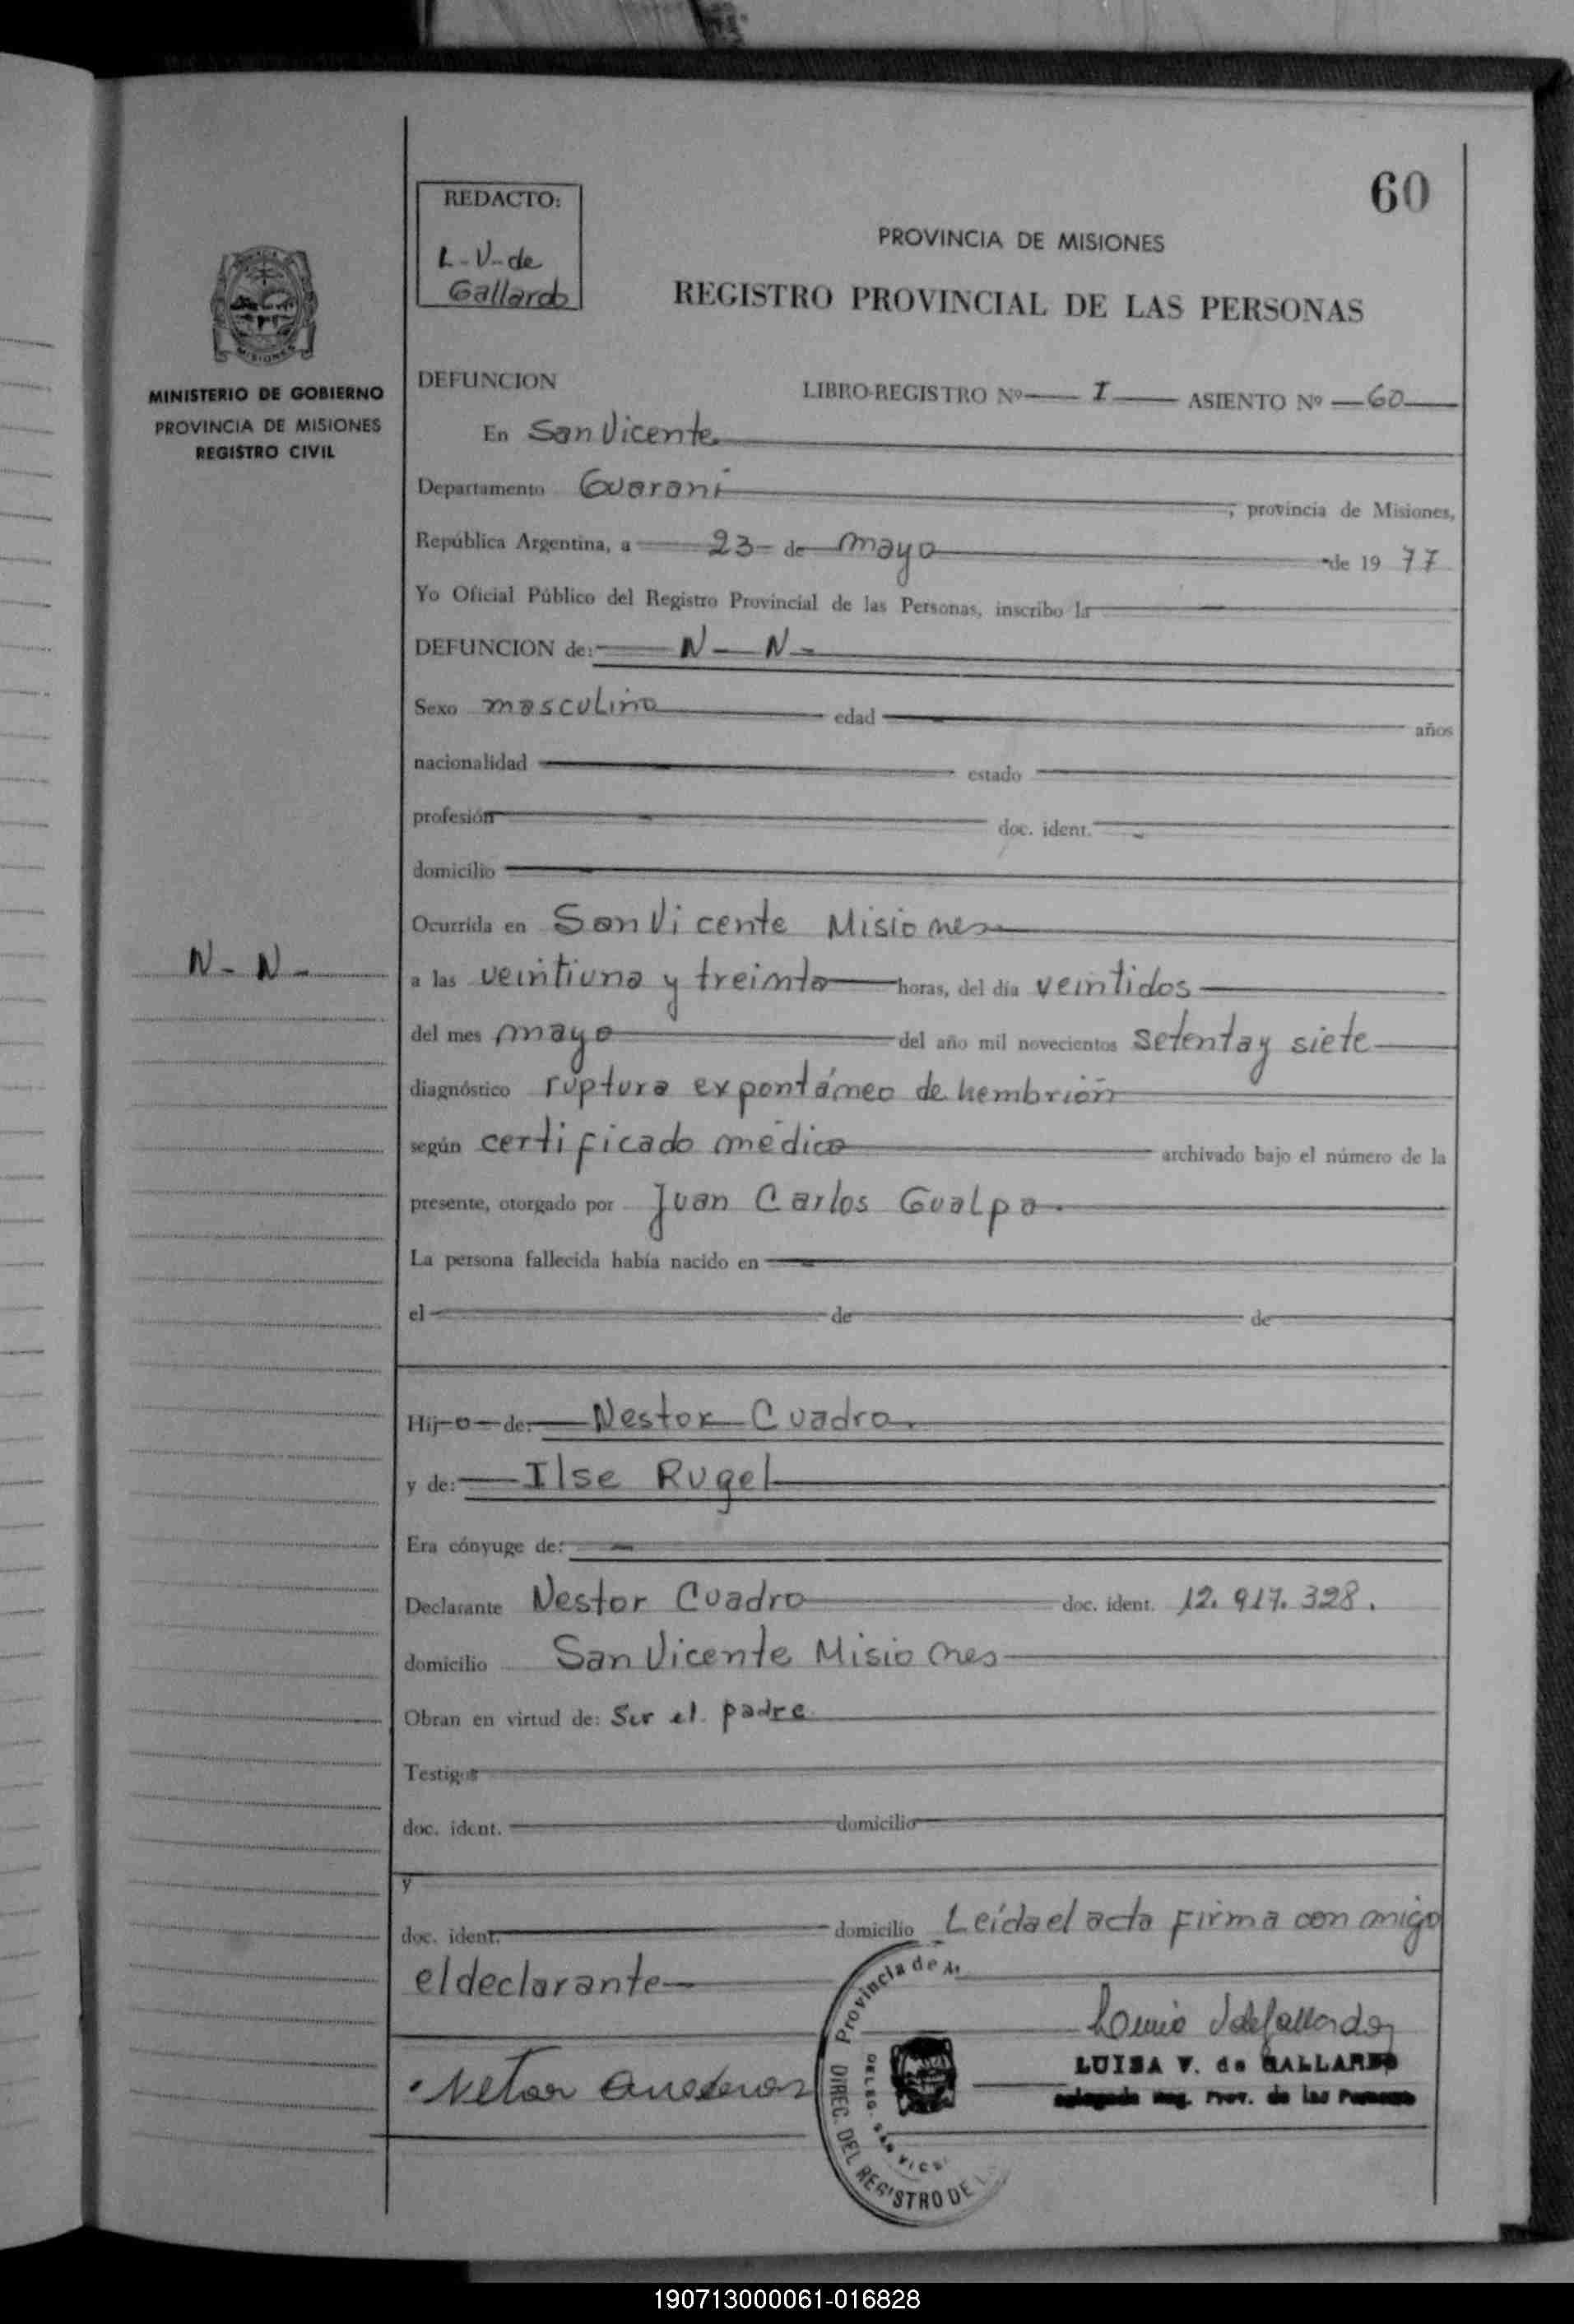 60
REDACTO:
L-V-de
Gallardo
PROVINCIA DE MISIONES
REGISTRO PROVINCIAL DE LAS PERSONAS
MISIONES
MINISTERIO DE GOBIERNO
PROVINCIA DE MISIONES
REGISTRO CIVIL
DEFUNCION LIBRO-REGISTRO Nº I ASIENTO Nº 60
En San Vicente
Departamento Guarani, provincia de Misiones,
República Argentina, a 23 de mayo de 1977
Yo Oficial Público del Registro Provincial de las Personas, inscribo la
DEFUNCION de: N - N -
Sexo masculino edad años
nacionalidad estado
profesión doc. ident.
domicilio
Ocurrida en San Vicente Misiones
N - N -
a las veintiuna y treinta horas, del día veintidos
del mes mayo del año mil novecientos setenta y siete
diagnóstico ruptura expontáneo de hembrión
según certificado médico archivado bajo el número de la
presente, otorgado por Juan Carlos Gualpa.
La persona fallecida había nacido en
el de de
Hijo de: Nestor Cuadro.
y de: Ilse Rugel
Era cónyuge de:
Declarante Nestor Cuadro doc. ident. 12.917.328.
domicilio San Vicente Misiones
Obran en virtud de: Ser el padre
Testigos
doc. ident. domicilio
y
doc. ident. domicilio Leída el acta firma con migo
el declarante
Provincia de M
DIREC. DEL REGISTRO DE L
DELEG. SAN VICE
LUISA V. de GALLARDO
Delegada Reg. Prov. de las Personas
190713000061-016828